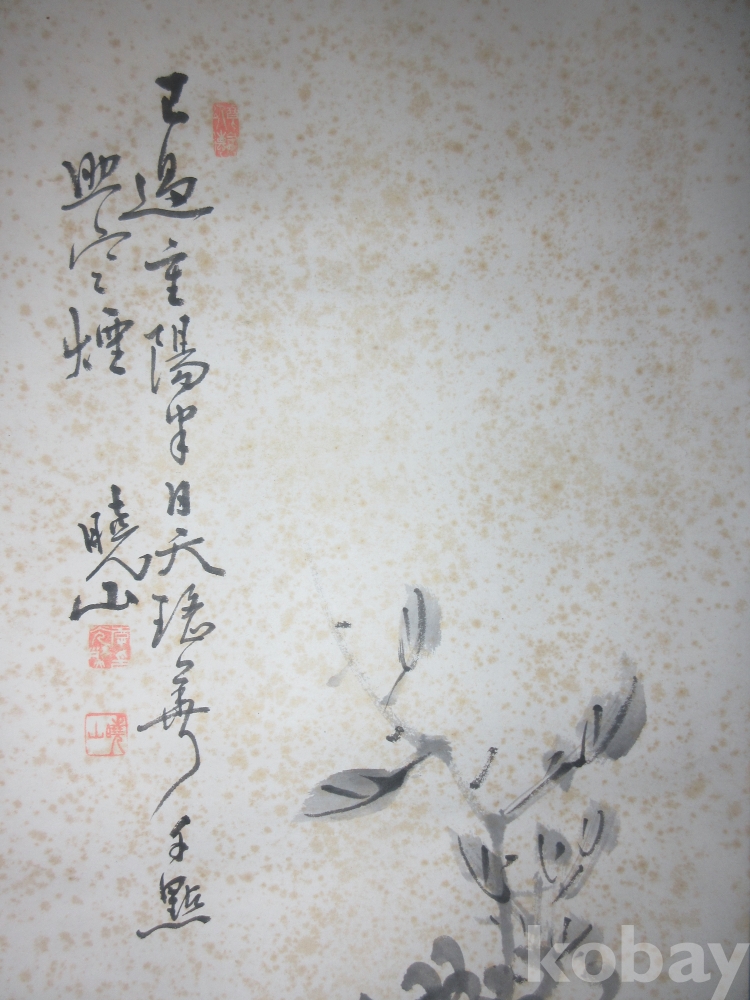 已過重陽半月天瑤華千點
照寒煙
曉山
曉山
kobay